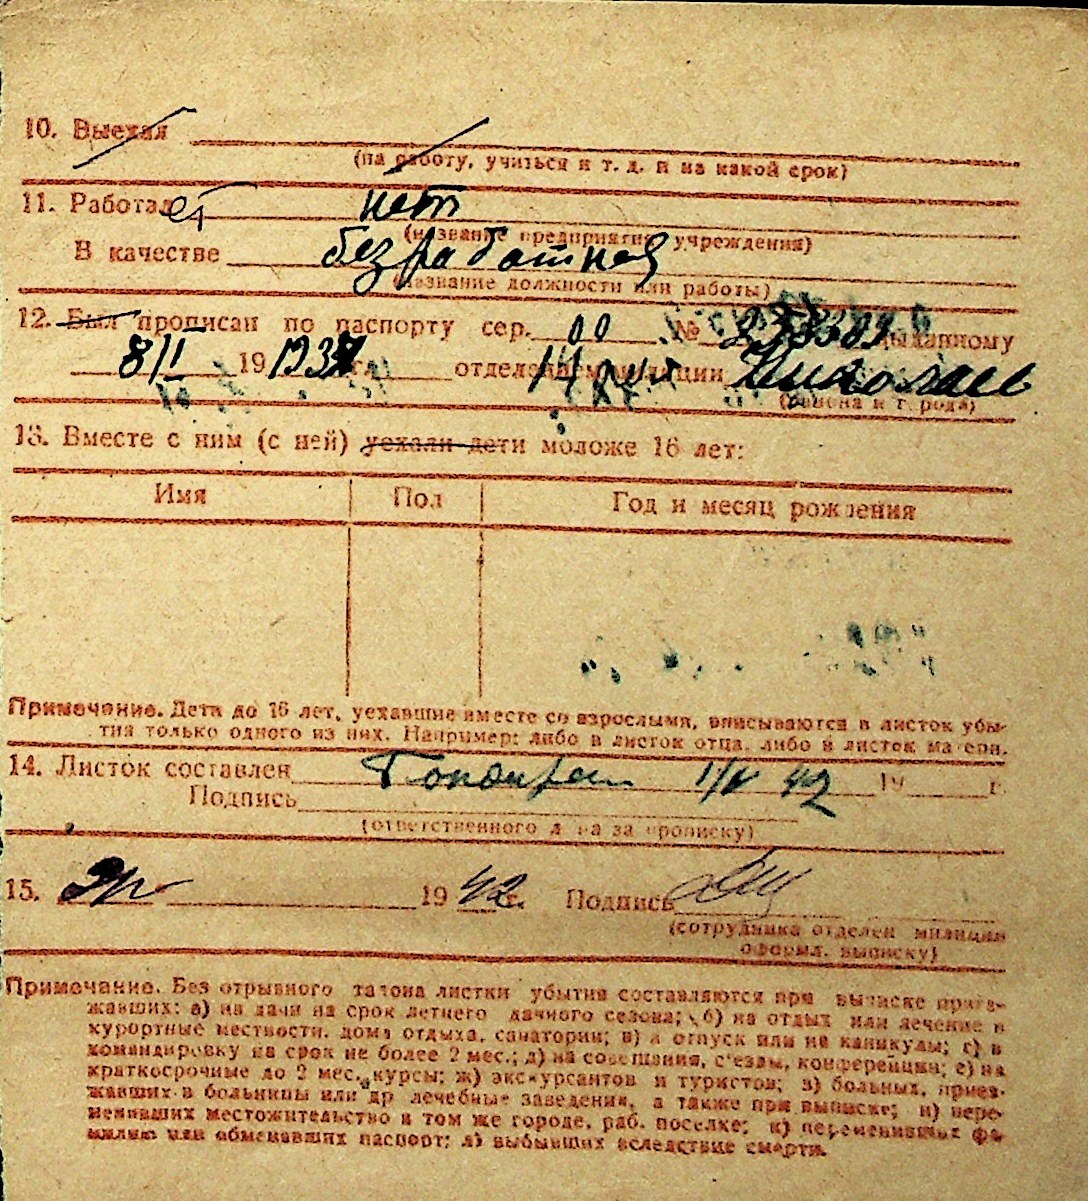 10. Выехал
(на работу, учиться и т. д. и на какой срок)
11. Работает нет
(название предприятия учреждения)
В качестве безработная
(название должности или работы)
12. Был прописан по паспорту сер. № выданному
8/II 1937 г. отделением милиции Николаев
(района и города)
13. Вместе с ним (с ней) уехали дети моложе 16 лет:
Имя Пол Год и месяц рождения
Примечание. Дети до 16 лет, уехавшие вместе со взрослыми, вписываются в листок убы-
тия только одного из них. Например: либо в листок отца, либо в листок матери.
14. Листок составлен 42 19 г.
Подпись
(ответственного л на за прописку)
15. 1942 г. Подпись
(сотрудника отделен милиции
оформл. выписку)
Примечание. Без отрывного талона листки убытия составляются при выписке приез-
жавших: а) на дачи на срок летнего дачного сезона; б) на отдых или лечение в
курортные местности, дома отдыха, санатории; в) в отпуск или на каникулы; г) в
командировку на срок не более 2 мес.; д) на совещания, с'езды, конференции; е) на
краткосрочные до 2 мес. курсы; ж) экскурсантов и туристов; з) больных, приез-
жавших в больницы или др лечебные заведения, а также при выписке; и) пере-
менивших местожительство в том же городе, раб. поселке; к) переменивших фа-
милию или обменявших паспорт; л) выбывших вследствие смерти.